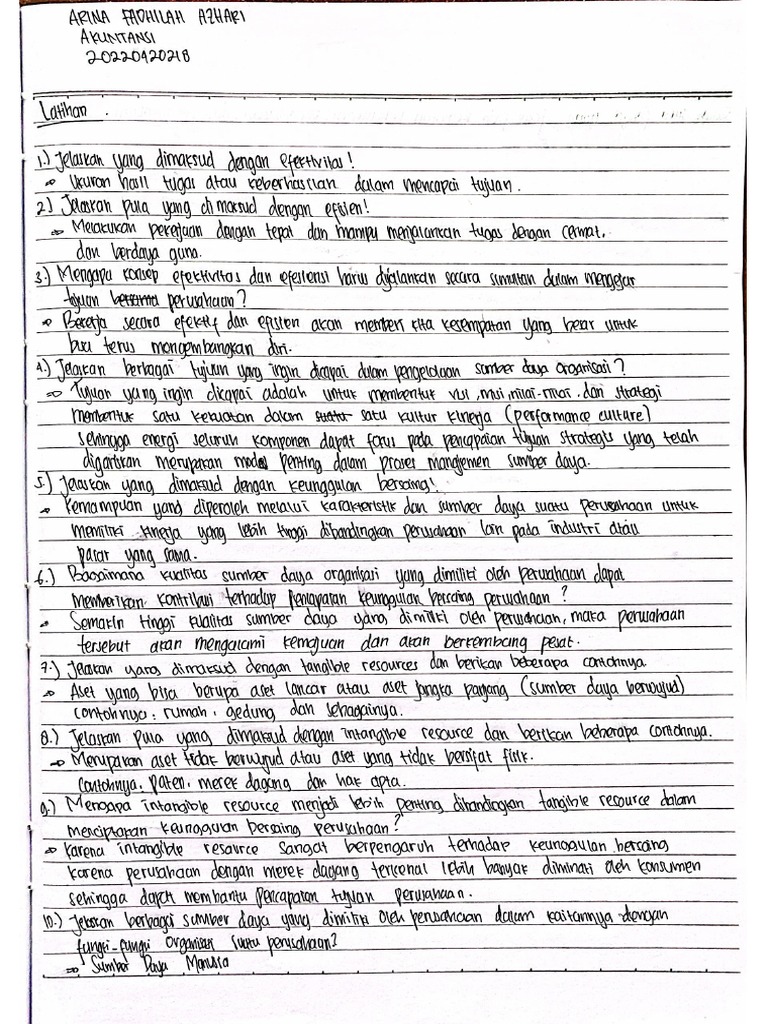 ARINA FADHILAH AZHARI
AKUNTANSI
20220420218
Latihan.
1.) Jelaskan yang dimaksud dengan efektivitas!
Ukuran hasil tugas atau keberhasilan dalam mencapai tujuan.
2.) Jelaskan pula yang di maksud dengan efisien!
Melakukan pekerjaan dengan tepat dan mampu menjalankan tugas dengan cermat,
dan berdaya guna.
3.) Mengapa konsep efektivitas dan efesiensi harus dijalankan secara simultan dalam mengejar
tujuan bersama perusahaan?
Bekerja secara efektif dan efisien akan memberi kita kesempatan yang besar untuk
bisa terus mengembangkan diri.
4.) Jelaskan berbagai tujuan yang ingin dicapai dalam pengelolaan sumber daya organisasi?
Tujuan yang ingin dicapai adalah untuk membentuk visi, misi, nilai-nilai, dan strategi
membentuk satu kekuatan dalam satu kultur kinerja (performance culture)
sehingga energi seluruh komponen dapat fokus pada pencapaian tujuan strategis yang telah
digariskan merupakan modal penting dalam proses manajemen sumber daya.
5.) Jelaskan yang dimaksud dengan keunggulan bersaing!
Kemampuan yang diperoleh melalui karakteristik dan sumber daya suatu perusahaan untuk
memiliki kinerja yang lebih tinggi dibandingkan perusahaan lain pada industri atau
pasar yang sama.
6.) Bagaimana kualitas sumber daya organisasi yang dimiliki oleh perusahaan dapat
memberikan kontribusi terhadap pencapaian keunggulan bersaing perusahaan?
Semakin tinggi kualitas sumber daya yang dimiliki oleh perusahaan, maka perusahaan
tersebut akan mengalami kemajuan dan akan berkembang pesat.
7.) Jelaskan yang dimaksud dengan tangible resources dan berikan beberapa contohnya
Aset yang bisa berupa aset lancar atau aset jangka panjang (sumber daya berwujud)
contohnya: rumah, gedung dan sebagainya.
8.) Jelaskan pula yang dimaksud dengan intangible resource dan berikan beberapa contohnya.
Merupakan aset tidak berwujud atau aset yang tidak bersifat fisik.
Contohnya, paten, merek dagang dan hak cipta.
9.) Mengapa intangible resource menjadi lebih penting dibandingkan tangible resource dalam
menciptakan keunggulan bersaing perusahaan?
Karena intangible resource sangat berpengaruh terhadap keunggulan bersaing
karena perusahaan dengan merek dagang terkenal lebih banyak diminati oleh konsumen
sehingga dapat membantu pencapaian tujuan perusahaan.
10.) Jelaskan berbagai sumber daya yang dimiliki oleh perusahaan dalam kaitannya dengan
fungsi-fungsi organisasi suatu perusahaan?
Sumber Daya Manusia